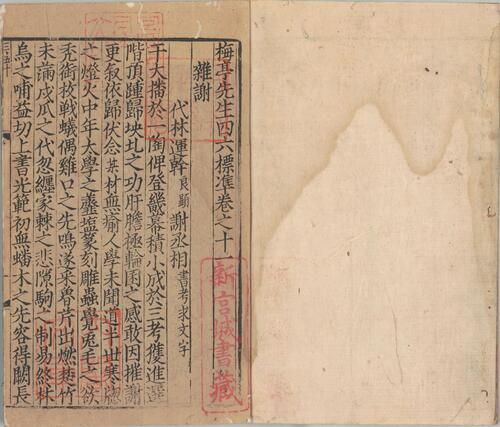 梅亭先生四六標準卷之十一
雜謝
代林運幹良顯謝丞相書考求文字
干大播於一陶俾登畿幕積小成於三考獲進選
階頂踵歸坱圠之功肝膽極輪囷之感敢因摧謝
更叙依歸伏念某材無瑜人學未聞道半世寒窓
之燈火中年大學之虀鹽篆刻雕蟲覺兎毛之欲
禿銜枚戰蟻偶雞口之先鳴遂采魯芹出燃楚竹
未滿戍瓜之代忽纏家棘之悲隙駒之制易終林
烏之哺益切上書光範初無蟠木之先容得闕長
新宮城書藏